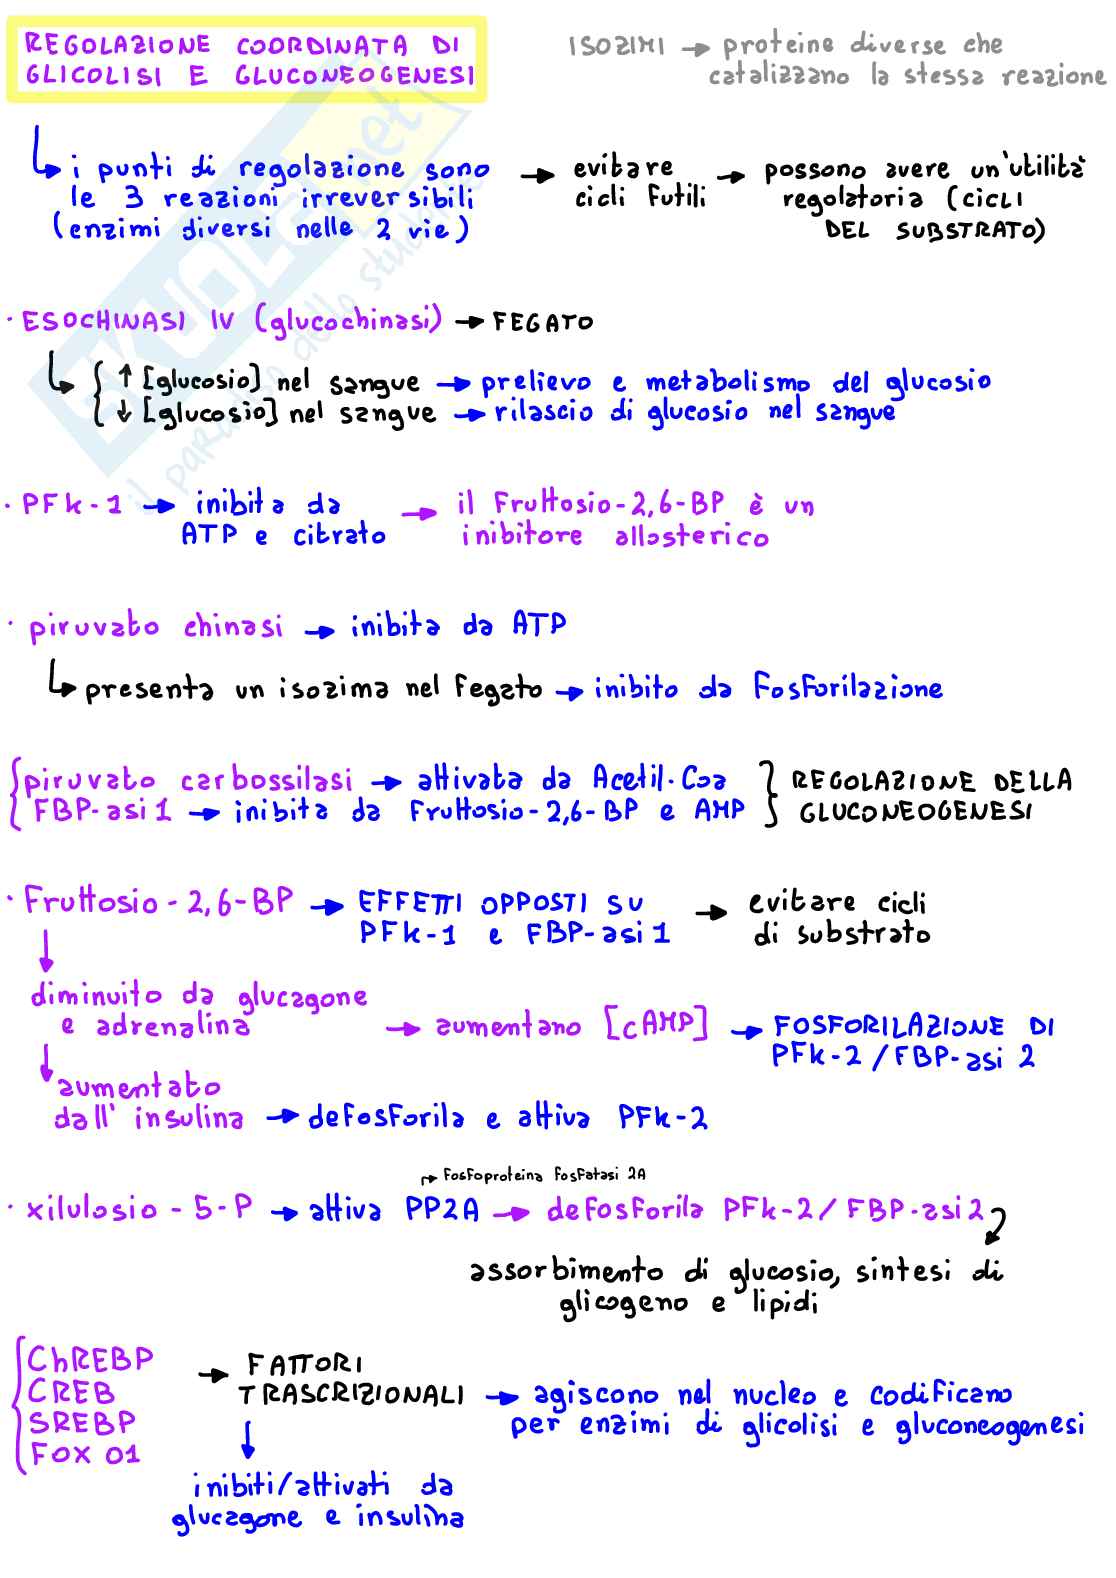 REGOLAZIONE COORDINATA DI
GLICOLISI E GLUCONEOGENESI
ISOZIMI → proteine diverse che
catalizzano la stessa reazione
i punti di regolazione sono
le 3 reazioni irreversibili
(enzimi diversi nelle 2 vie)
→ evitare
cicli futili
→ possono avere un'utilità
regolatoria (CICLI
DEL SUBSTRATO)
· ESOCHINASI IV (glucochinasi) → FEGATO
↑ [glucosio] nel sangue → prelievo e metabolismo del glucosio
↓ [glucosio] nel sangue → rilascio di glucosio nel sangue
· PFk-1 → inibita da
ATP e citrato
→ il Fruttosio-2,6-BP è un
inibitore allosterico
· piruvato chinasi → inibita da ATP
presenta un isozima nel Fegato → inibito da Fosforilazione
piruvato carbossilasi → attivata da Acetil-Coa
FBP-asi 1 → inibita da Fruttosio-2,6-BP e AMP
REGOLAZIONE DELLA
GLUCONEOGENESI
· Fruttosio-2,6-BP → EFFETTI OPPOSTI SU
PFk-1 e FBP-asi 1
→ evitare cicli
di substrato
diminuito da glucagone
e adrenalina
→ aumentano [cAMP] → FOSFORILAZIONE DI
PFk-2/FBP-asi 2
aumentato
dall' insulina → defosforila e attiva PFk-2
→ Fosfoproteina Fosfatasi 2A
· xilulosio-5-P → attiva PP2A → defosforila PFk-2/FBP-asi2
assorbimento di glucosio, sintesi di
glicogeno e lipidi
ChREBP
CREB
SREBP
FOX O1
→ FATTORI
TRASCRIZIONALI → agiscono nel nucleo e codificano
per enzimi di glicolisi e gluconeogenesi
inibiti/attivati da
glucagone e insulina
SKUOLA.net
il paradiso dello studente